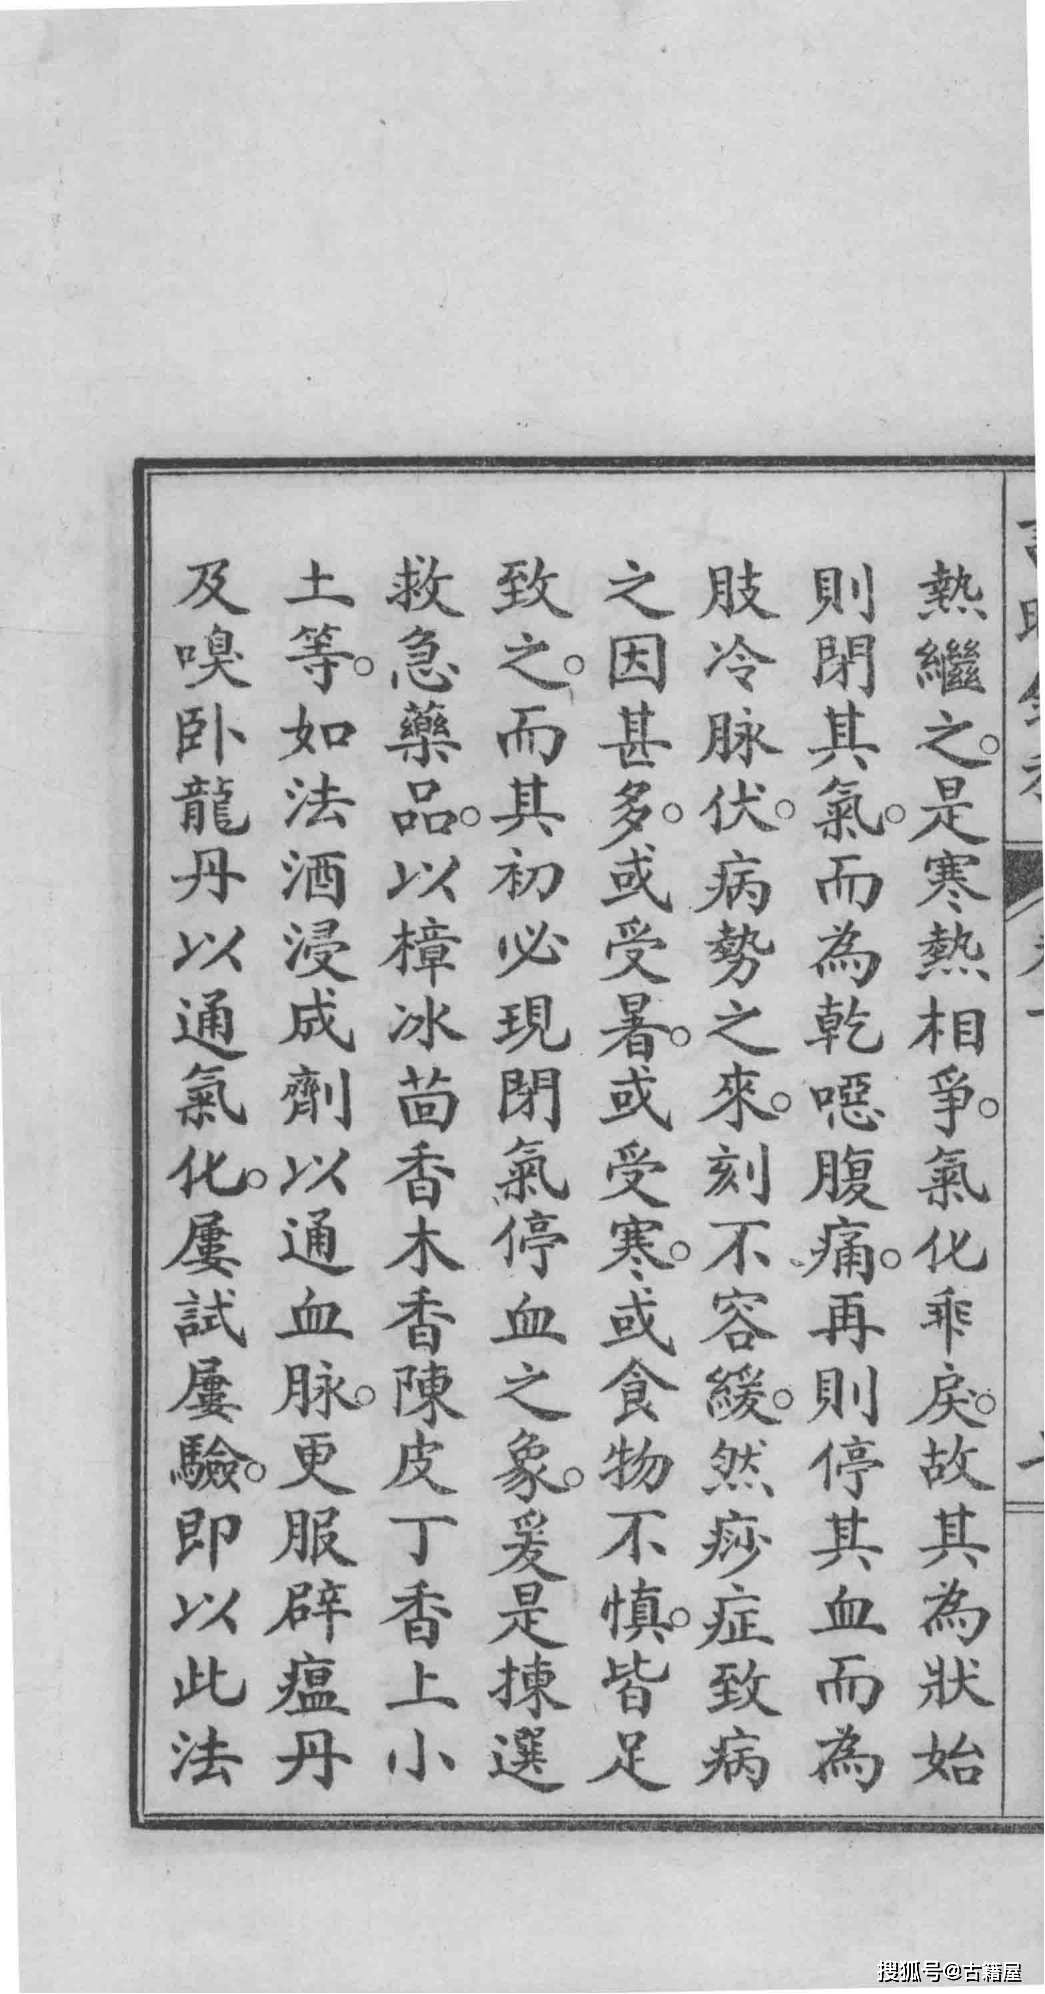 熱繼之。是寒熱相爭。氣化乖戾。故其為狀始
則閉其氣。而為乾噁腹痛。再則停其血而為
肢冷脉伏。病勢之來。刻不容緩。然痧症致病
之因甚多。或受暑。或受寒。或食物不慎。皆足
致之。而其初必現閉氣停血之象。爰是揀選
救急藥品。以樟冰茴香木香陳皮丁香上小
土等。如法酒浸成劑以通血脉。更服辟瘟丹
及嗅卧龍丹以通氣化。屢試屢驗。即以此法
搜狐号@古籍屋